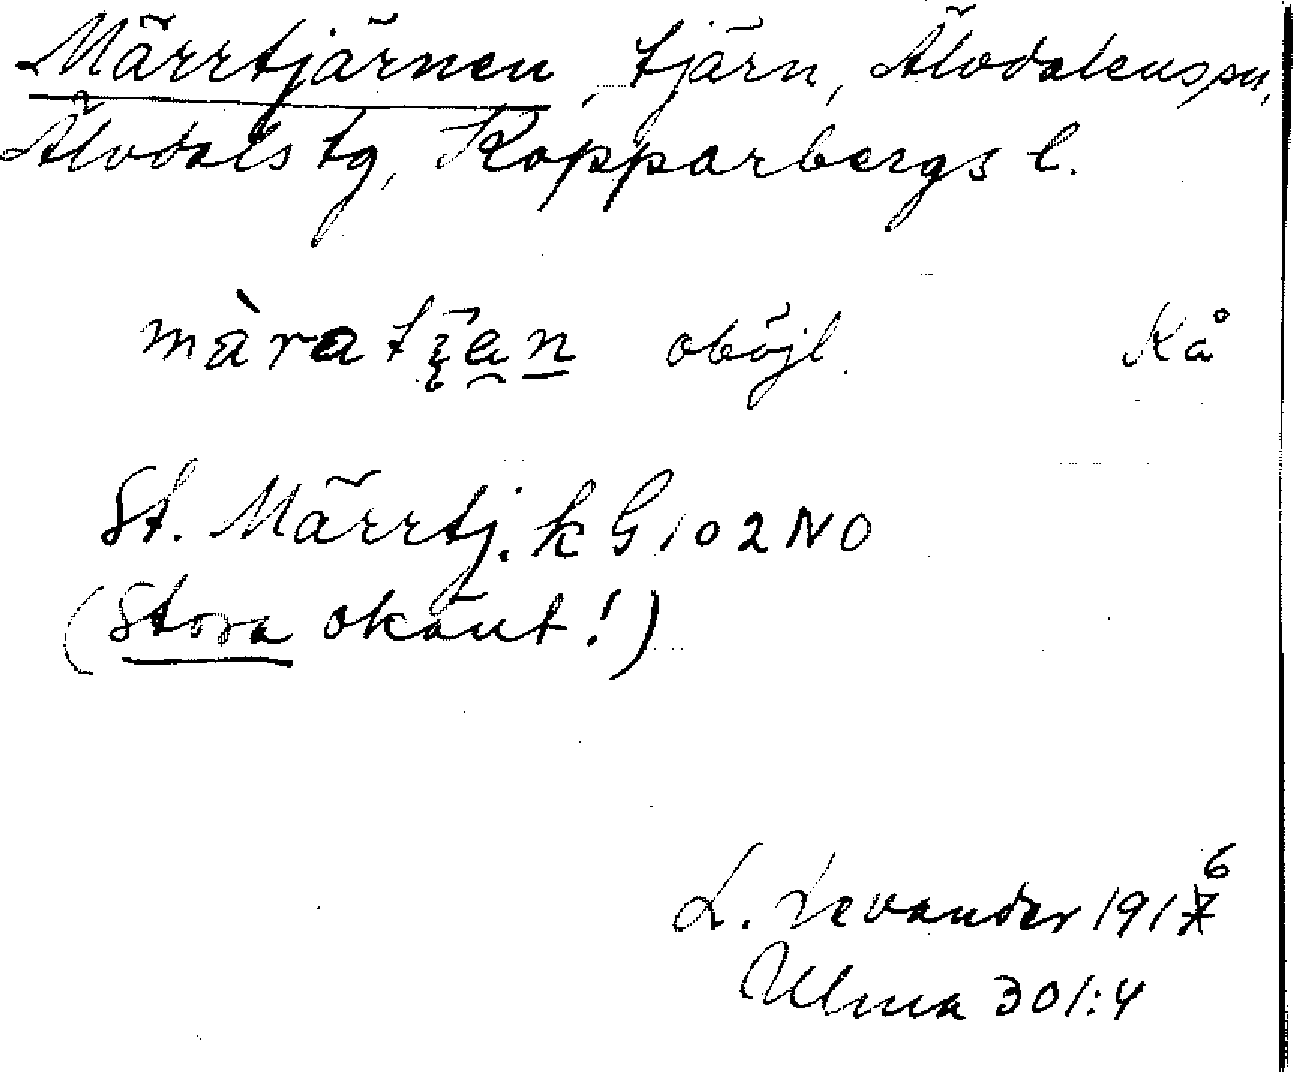 Märrtjärnen, tjärn, Älvdalens sn,
Älvdals tg, Kopparbergs l.
oböjl. Kå
St. Märrtj. k G 102 NO
(Stora okänt!)
L. Levander 1916
Ulma 301:4